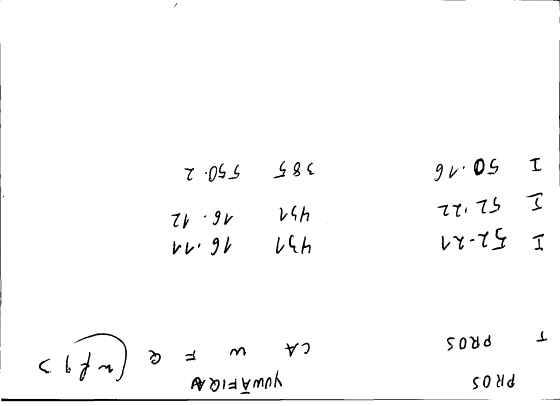 PROS YUWĀFIQA
T PROS CA W F Q (nfq) >
I 52.21 431 16.11
I 52.22 431 16.12
I 50.16 385 550.2